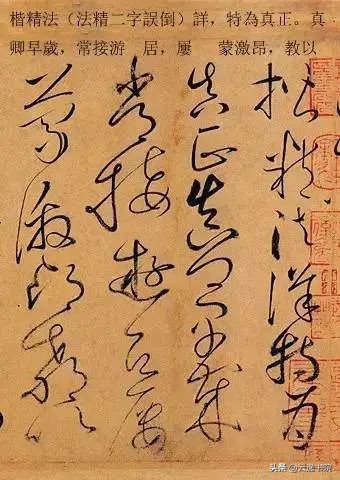 楷精法（法精二字誤倒）詳，特為真正。真
卿早歲，常接游　居，屢　蒙激昂，教以
楷精法詳特為
真正真卿早歲
常接遊居屢
蒙激昂教以
头条 @云逸书院